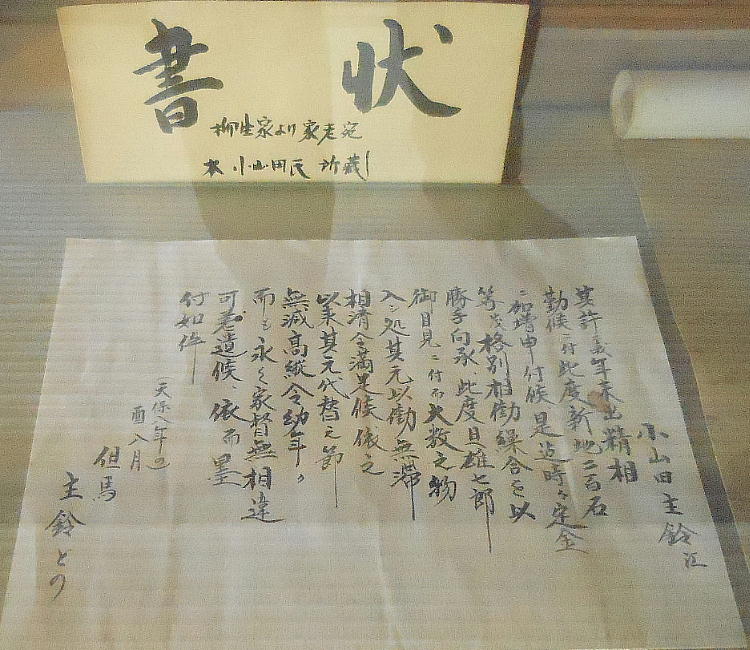 書状
柳生家より家老宛
小山田氏所蔵
小山田主鈴江
其許義年来出精相
勤候ニ付此度新地二百石
ニ加増申付候是迄時々定金
等茂格別相勤繰合を以
勝手向承此度目雄七郎
御目見ニ付而大数之物
入之処其元以勤無滞
相済令満足候依之
以来其元代替之節
無減高縦令幼年ク
而も永く家督無相違
可差遣候依而墨
付如件
(天保八年の
酉八月
但馬
主鈴との